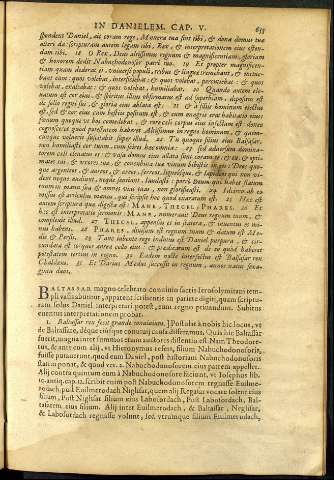 IN DANIELEM. CAP. V. 655
spondens Daniel, ait coram rege, Munera tua sint tibi, & dona domus tuæ
alteri da: scripturam autem legam tibi, Rex, & interpretationem eius osten-
dam tibi. 18 O Rex, Deus altissimus regnum & magnificentiam, gloriam
& honorem dedit Nabuchodonosor patri tuo. 19 Et propter magnificen-
tiam quam dederat ei, vniuersi populi, tribus & linguæ tremebant, & metue-
bant eum: quos volebat, interficiebat: & quos volebat, percutiebat: & quos
volebat, exaltabat: & quos volebat, humiliabat. 20 Quando autem ele-
uatum est cor eius, & spiritus illius obfirmatus est ad superbiam, depositus est
de solio regni sui, & gloria eius ablata est: 21 & à filiis hominum eiectus
est, sed & cor eius cum bestiis positum est, & cum onagris erat habitatio eius:
fœnum quoque vt bos comedebat, & rore cæli corpus eius infectum est: donec
cognosceret quod potestatem haberet Altissimus in regno hominum, & quem-
cunque voluerit suscitabit super illud. 22 Tu quoque filius eius Balsasar,
non humiliasti cor tuum, cum scires hæc omnia: 23 sed aduersum domina-
torem cæli eleuatus es, & vasa domus eius allata sunt coram te: & tu, & opti-
mates tui, & vxores tuæ, & concubinæ tuæ vinum bibistis in eis: Deos quo-
que argenteos, & aureos, & æreos, ferreos, ligneosque, & lapideos qui non vi-
dent neque audiunt, neque sentiunt, laudasti: porrò Deum qui habet flatum
tuum in manu sua & omnes vias tuas, non glorificasti. 24 Idcirco ab eo
missus est articulus manus, quæ scripsit hoc quod exaratum est. 25 Hæc est
autem scriptura quæ digesta est: MANE, THECEL, PHARES. 26 Et
hæc est interpretatio sermonis: MANE, numerauit Deus regnum tuum, &
compleuit illud. 27 THECEL, appensus es in statera, & inuentus es mi-
nus habens. 28 PHARES, diuisum est regnum tuum & datum est Me-
dis & Persis. 29 Tunc iubente rege indutus est Daniel purpura, & cir-
cundata est torques aurea collo eius: & prædicatum est de eo quod haberet
potestatem tertius in regno. 30 Eadem nocte interfectus est Balsasar rex
Chaldæus. 31 Et Darius Medus successit in regnum, annos natus sexa-
ginta duos.
BALTASSAR magno celebrato conuiuio sacris Ierosolymitani tem-
pli vasis abutitur, apparent scribentis in pariete digiti, quam scriptu-
ram solus Daniel interpretari potest, eum regno priuandum. Subitus
euentus interpretationem probat.
1. Baltassar rex fecit grande conuiuium.] Postulat à nobis hic locus, vt
de Baltassare, deque eiusque conuiuij causis disseramus. Quis hic Baltassar
fuerit, magna inter summos etiam auctores dissensio est. Nam Theodore-
tus, & ante eum alij, vt Hieronymus refert, filium Nabuchodonosoris,
fuisse putauerunt, quod eum Daniel, post historiam Nabuchodonosoris
statim ponat, & quod ver. 2. Nabuchodonosorem eius patrem appellet.
Alij contrà quintum eum à Nabuchodonosore faciunt, vt Iosephus lib.
10. antiq. cap. 12. scribit enim post Nabuchodonosorem regnasse Euilme-
rodach, post Euilmerodach Niglisar, quem alij Regasar vocatum solent eius
filium, Post Niglisar filium eius Labosordach, Post Labosordach, Bal-
tasarem eius filium. Alij inter Euilmerodach, & Baltassar, Neglisar,
& Labosordach regnasse volunt, sed vtrumque filium Euilmerodach,